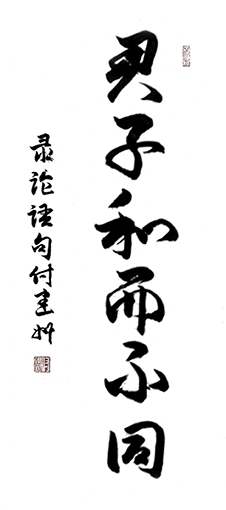 君子和而不同
录论语句付建